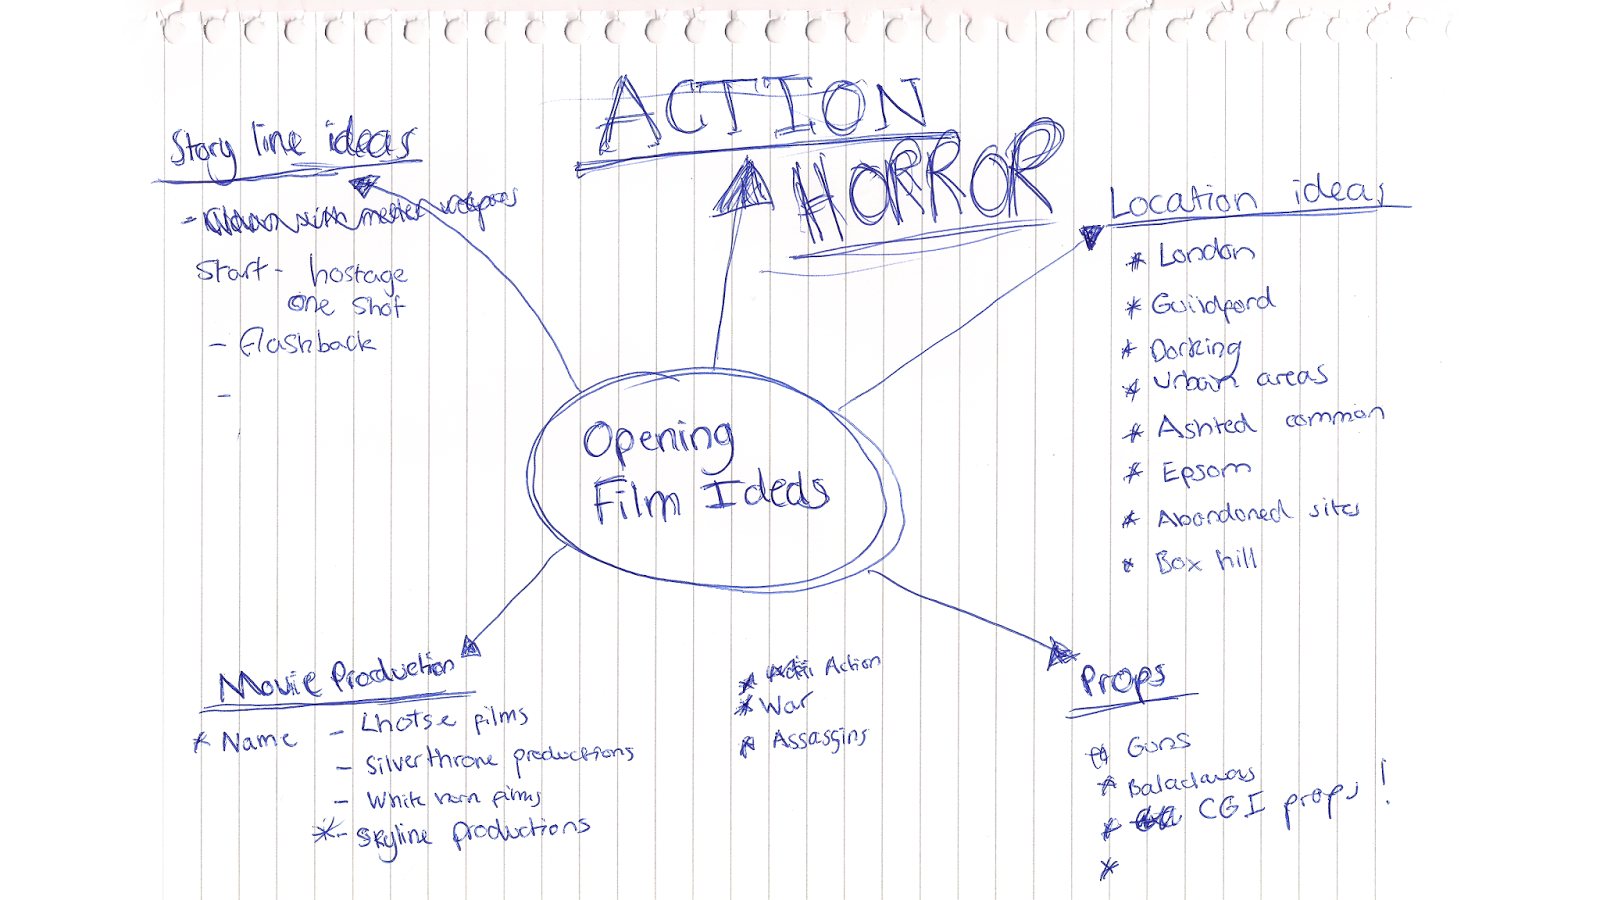 ACTION
HORROR
Story line ideas
- with
Start - hostage
one shot
- flashback
-
Location ideas
* London
* Guildford
* Dorking
* Urban areas
* Ashted common
* Epsom
* Abandoned sites
* Box hill
Opening
Film Ideas
Movie Production
* Name - Lhotse films
- Silverthrone productions
- White horn films
*- Skyline productions
* Action
* War
* Assassins
Props
* Guns
* Balaclavas
* CGI props!
*